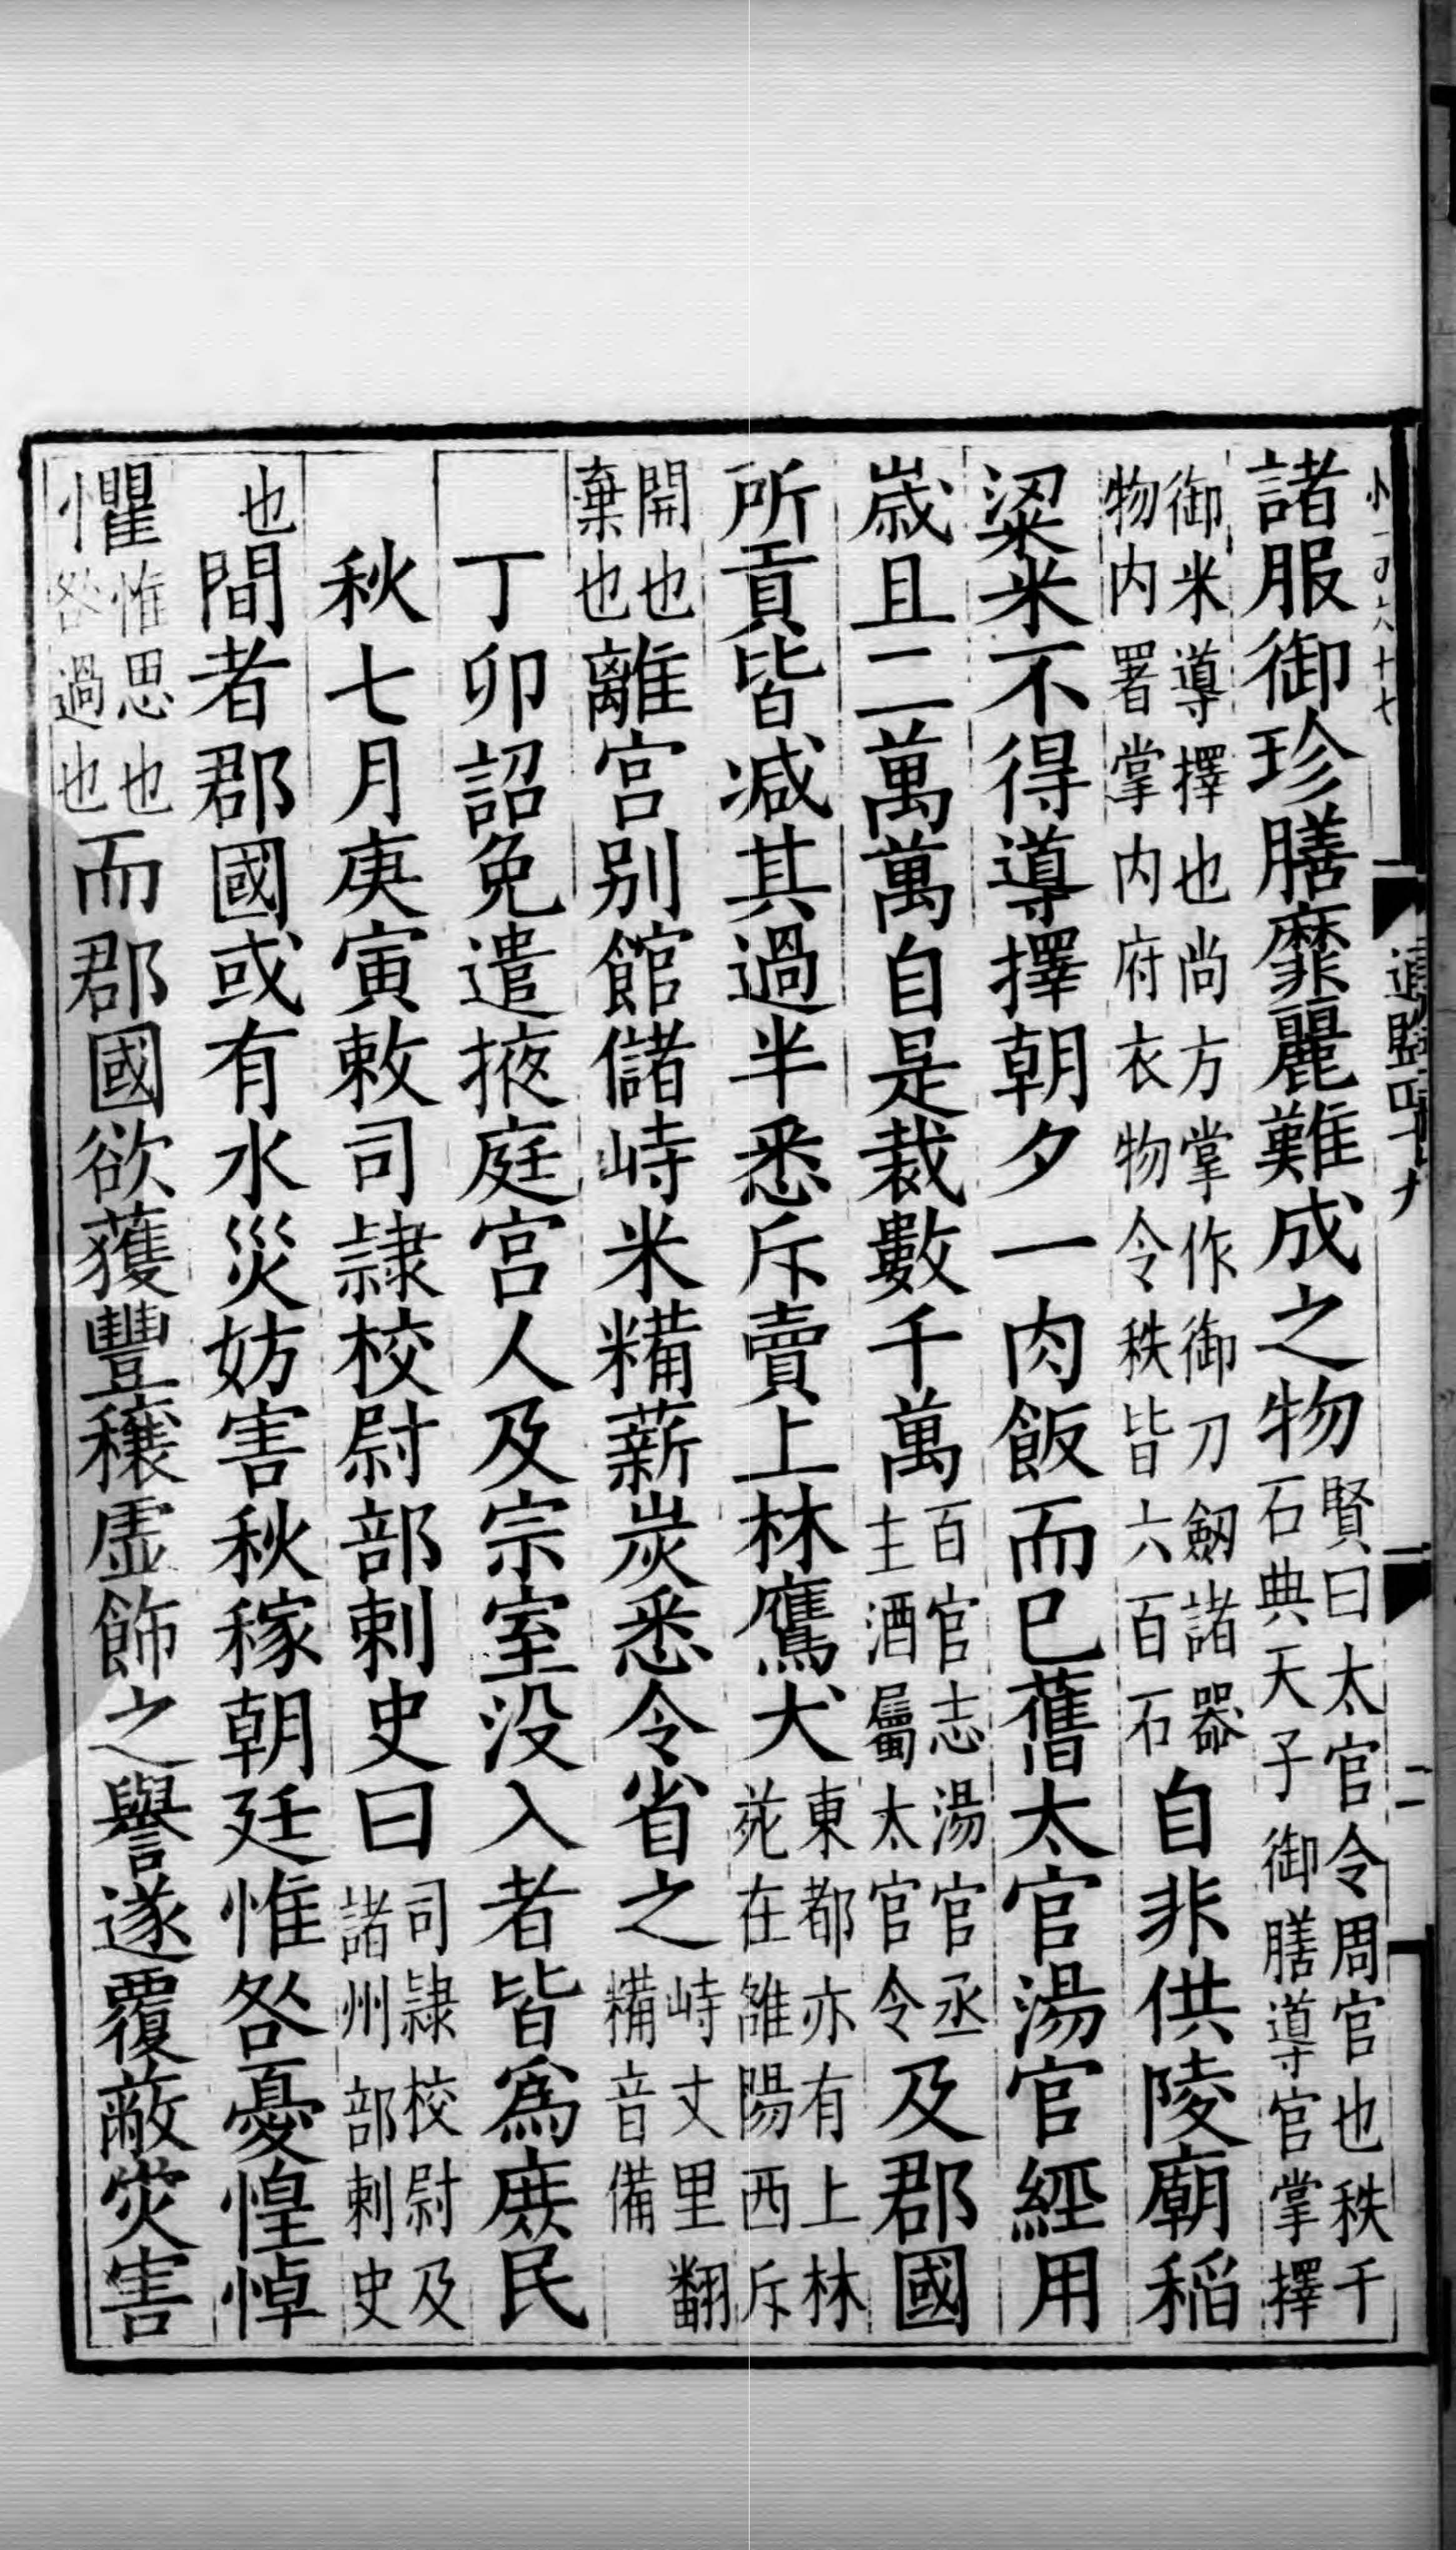 諸服御珍膳靡麗難成之物賢曰太官令周官也秩千石典天子御膳導官掌擇
御米導擇也尚方掌作御刀劒諸器物内署掌内府衣物令秩皆六百石自非供陵廟稻
粱米不得導擇朝夕一肉飯而已舊太官湯官經用
歳且二萬萬自是裁數千萬百官志湯官丞主酒屬太官令及郡國
所貢皆減其過半悉斥賣上林鷹犬東都亦有上林苑在雒陽西斥
開也棄也離宫别館儲峙米糒薪炭悉令省之峙丈里翻糒音備
丁卯詔免遣掖庭宫人及宗室没入者皆爲庶民
秋七月庚寅敕司隷校尉部刺史曰司隷校尉及諸州部刺史
也間者郡國或有水災妨害秋稼朝廷惟咎憂惶悼
懼惟思也咎過也而郡國欲獲豐穰虚飾之譽遂覆蔽災害